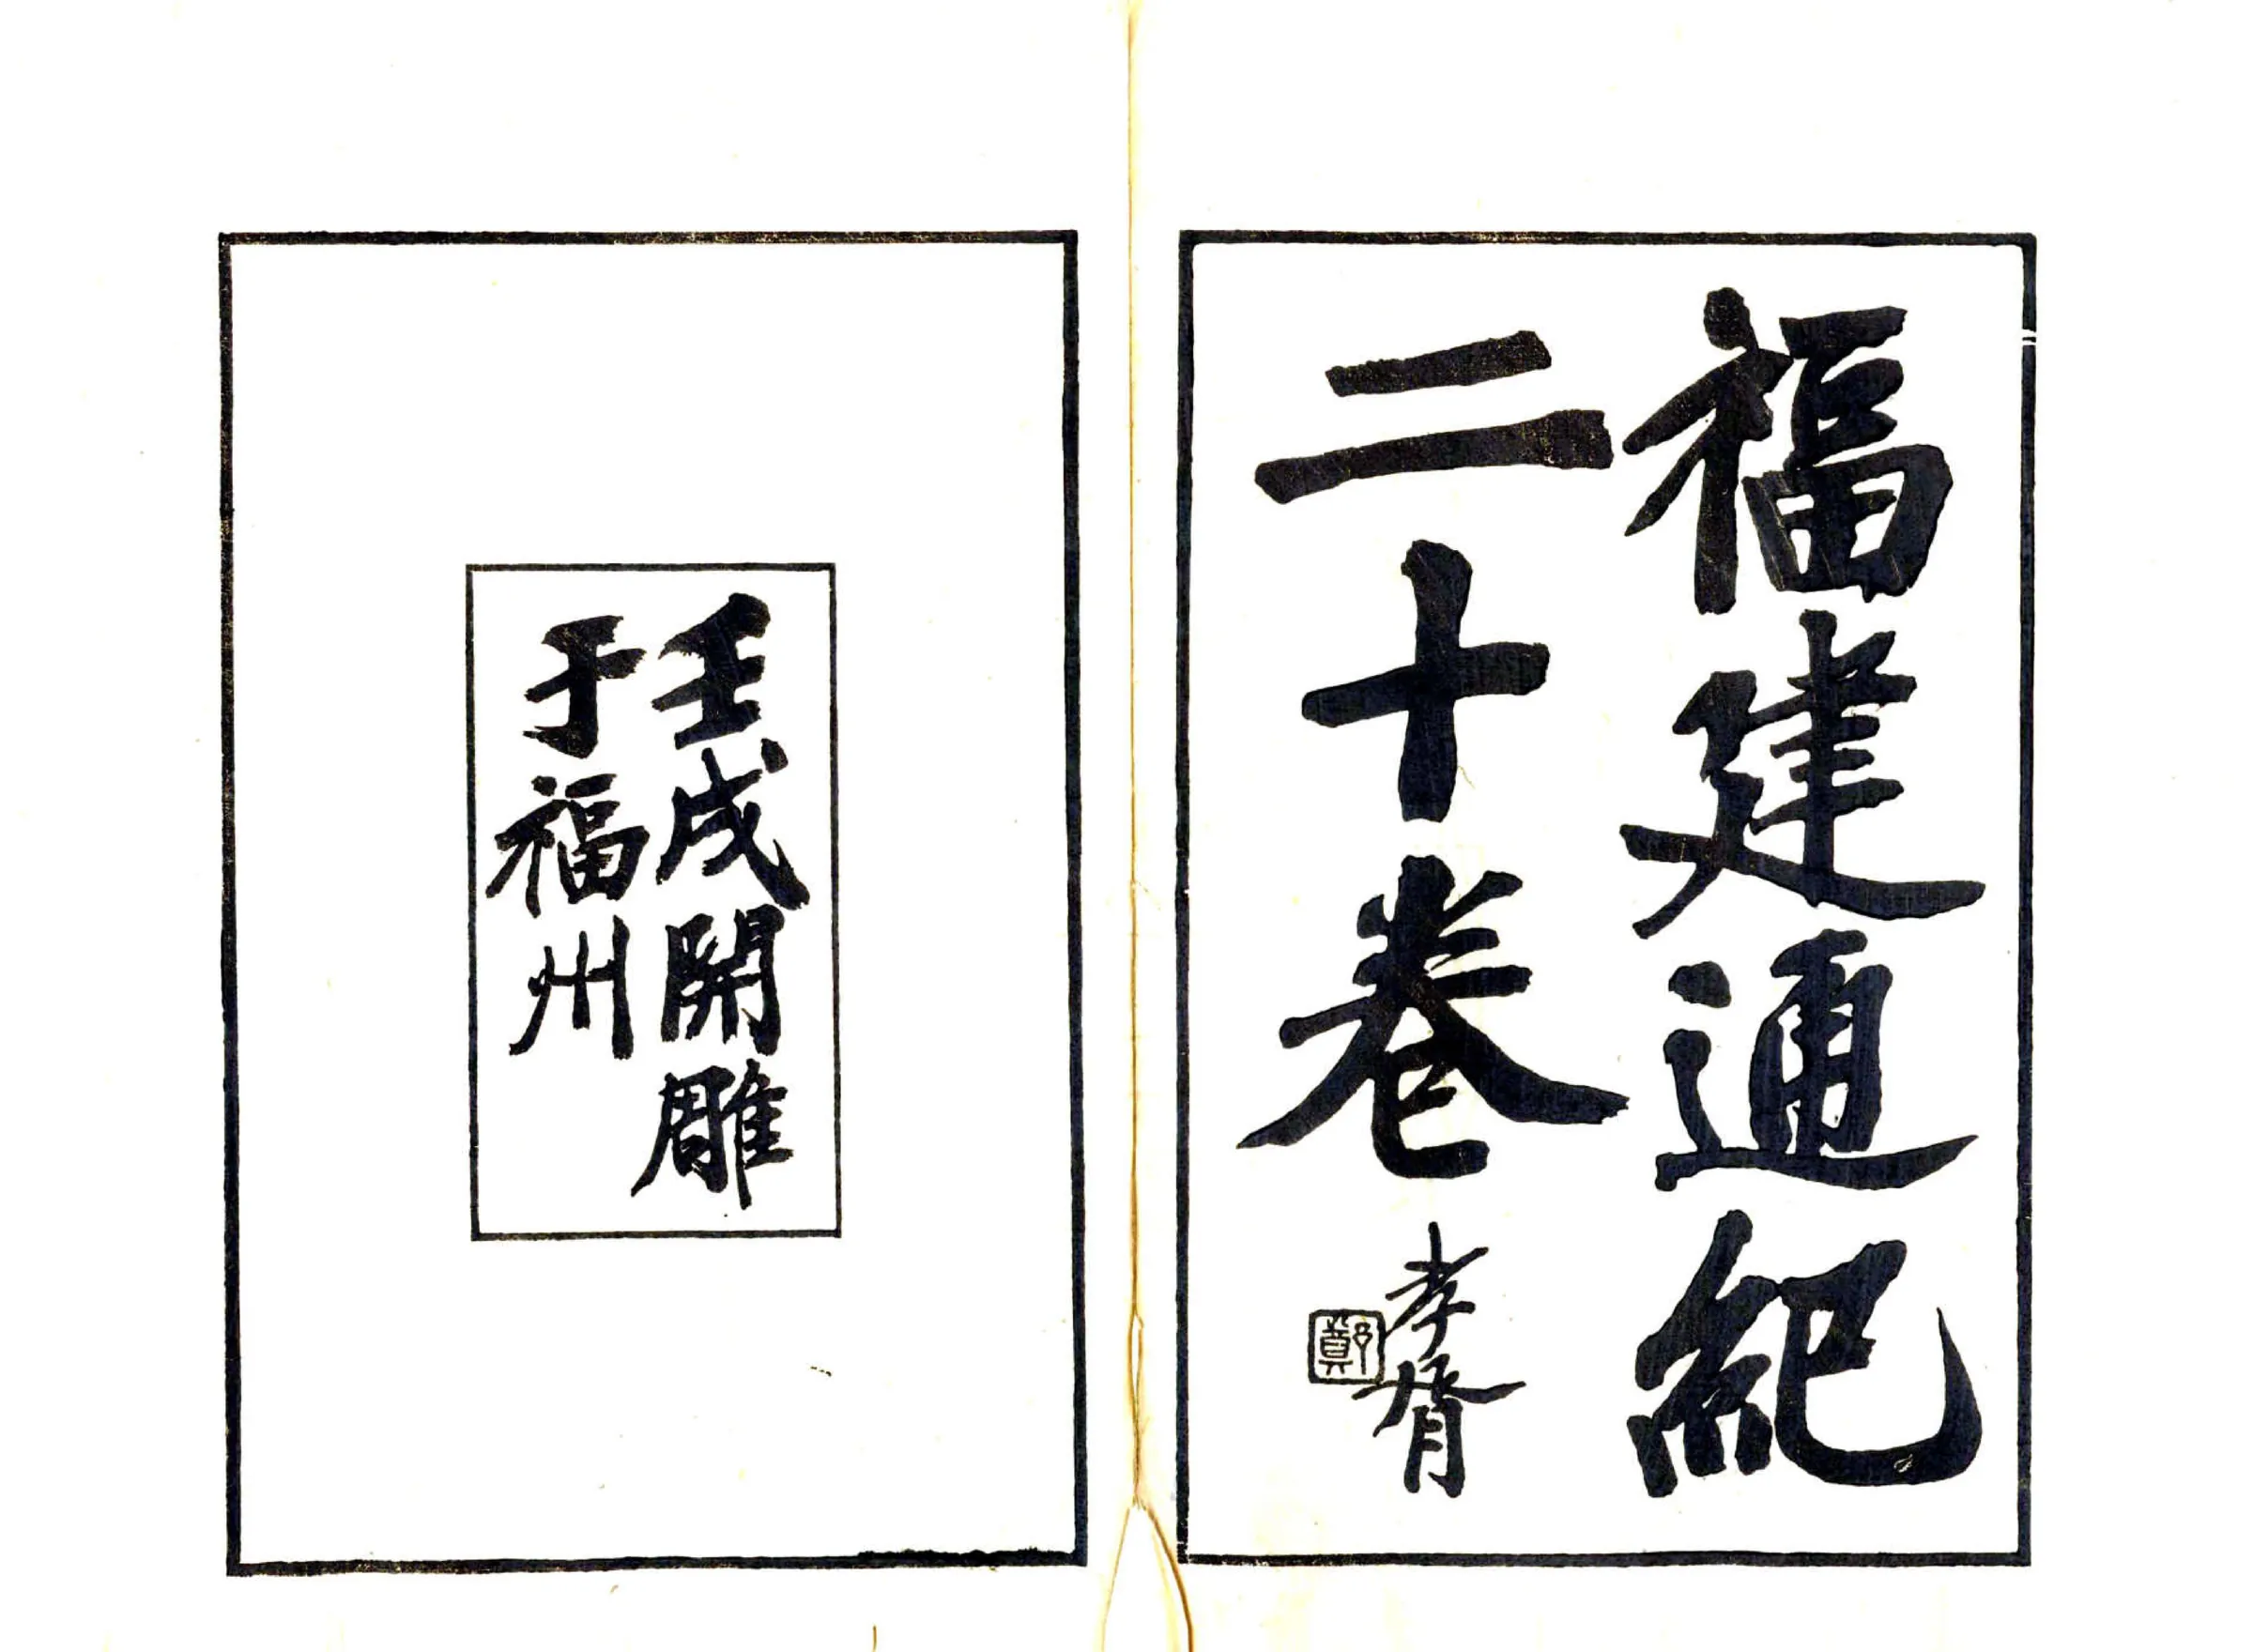 福建通紀
二十卷
孝胥
鄭
壬戌開雕
于福州